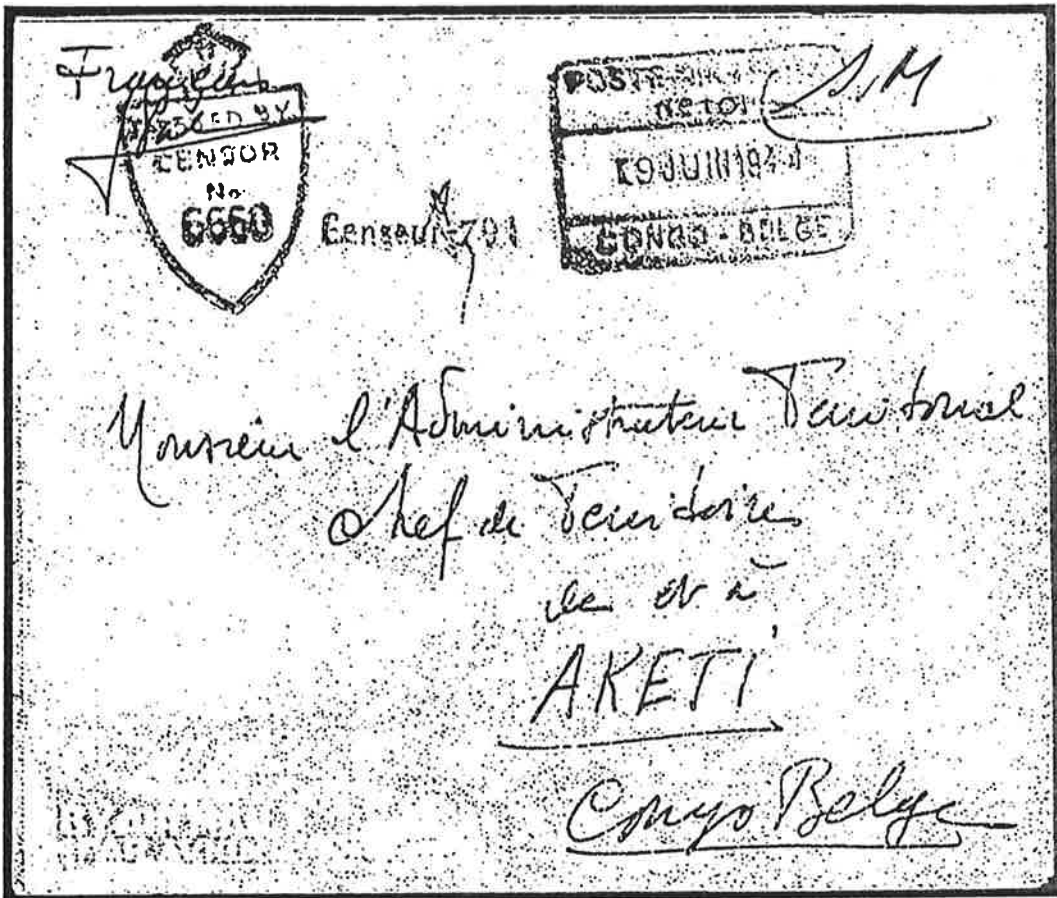 Français
PASSED BY
CENSOR
No
6660
Censeur-791
S.M
JUIN 194
CONGO-BELGE
Monsieur l'Administrateur Territorial
Chef de Territoire
de et à
AKETI
Congo Belge